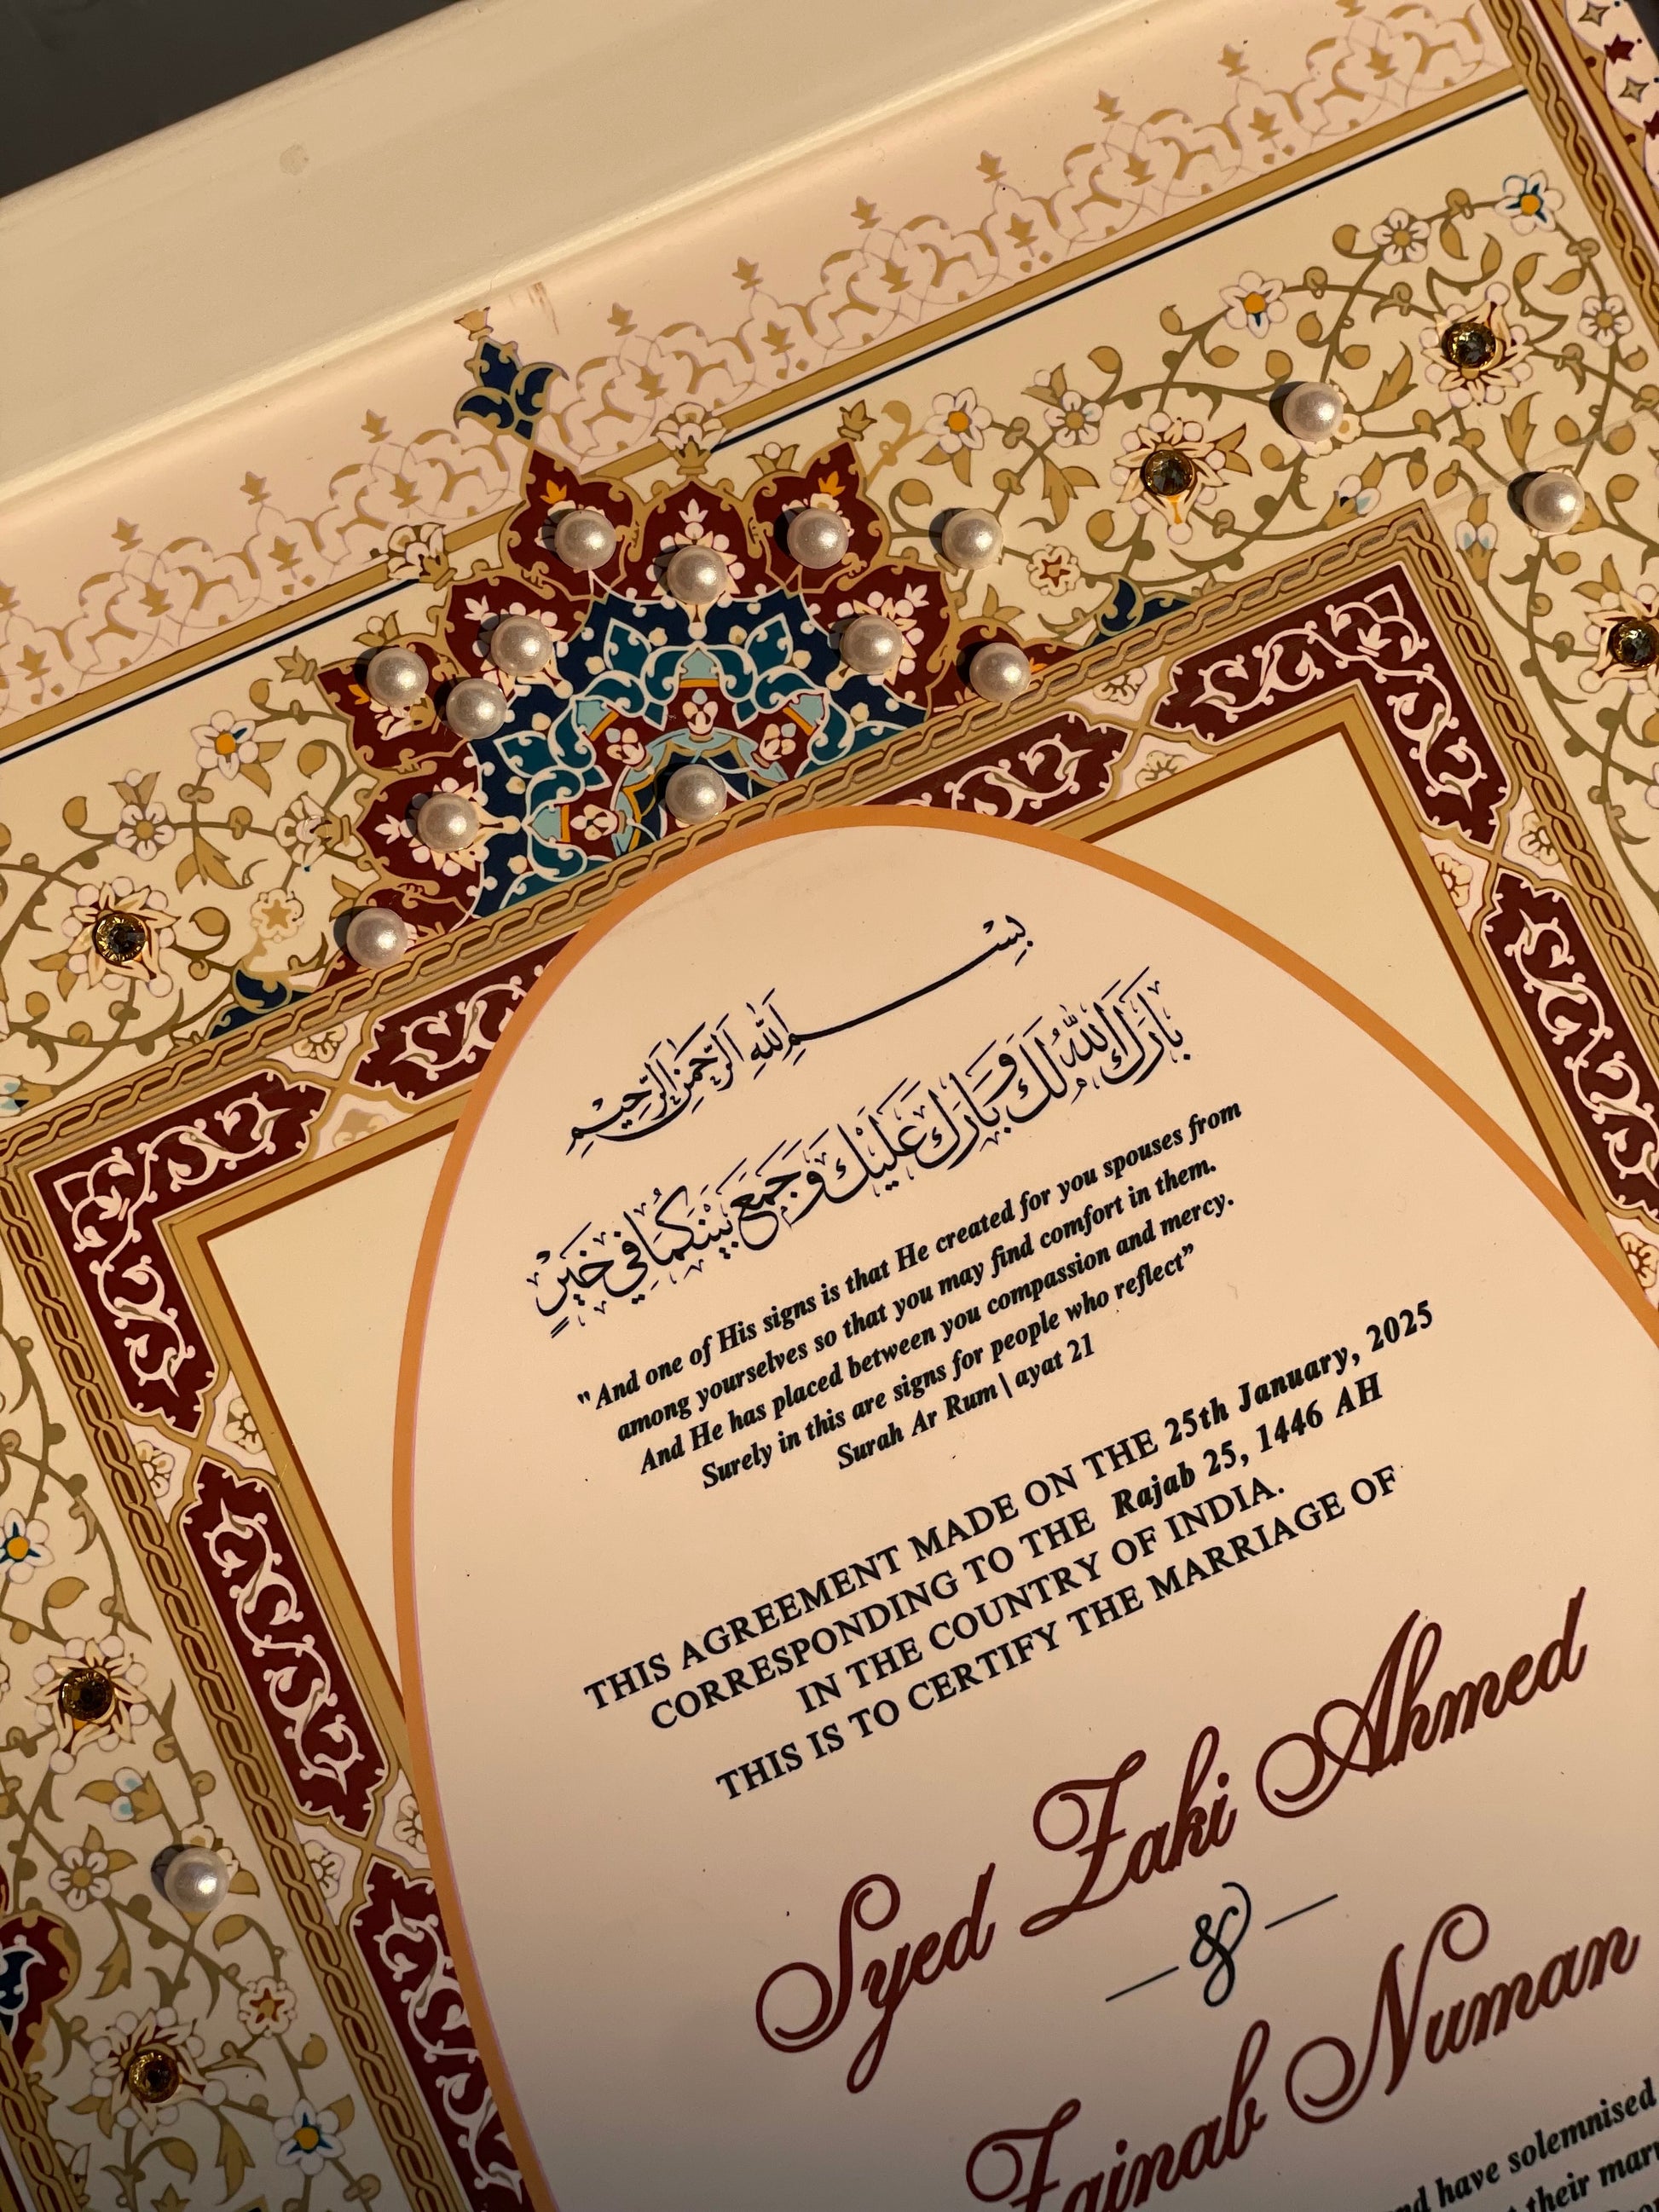 بِسْمِ اللهِ الرَّحْمٰنِ الرَّحِيمِ
بَارَكَ اللهُ لَكَ وَبَارَكَ عَلَيْكَ وَجَمَعَ بَيْنَكُمَا فِي خَيْرٍ
" And one of His signs is that He created for you spouses from
among yourselves so that you may find comfort in them.
And He has placed between you compassion and mercy.
Surely in this are signs for people who reflect”
Surah Ar Rum \ ayat 21
THIS AGREEMENT MADE ON THE 25th January, 2025
CORRESPONDING TO THE Rajab 25, 1446 AH
IN THE COUNTRY OF INDIA.
THIS IS TO CERTIFY THE MARRIAGE OF
Syed Zaki Ahmed
&
Zainab Numan
have solemnised
their